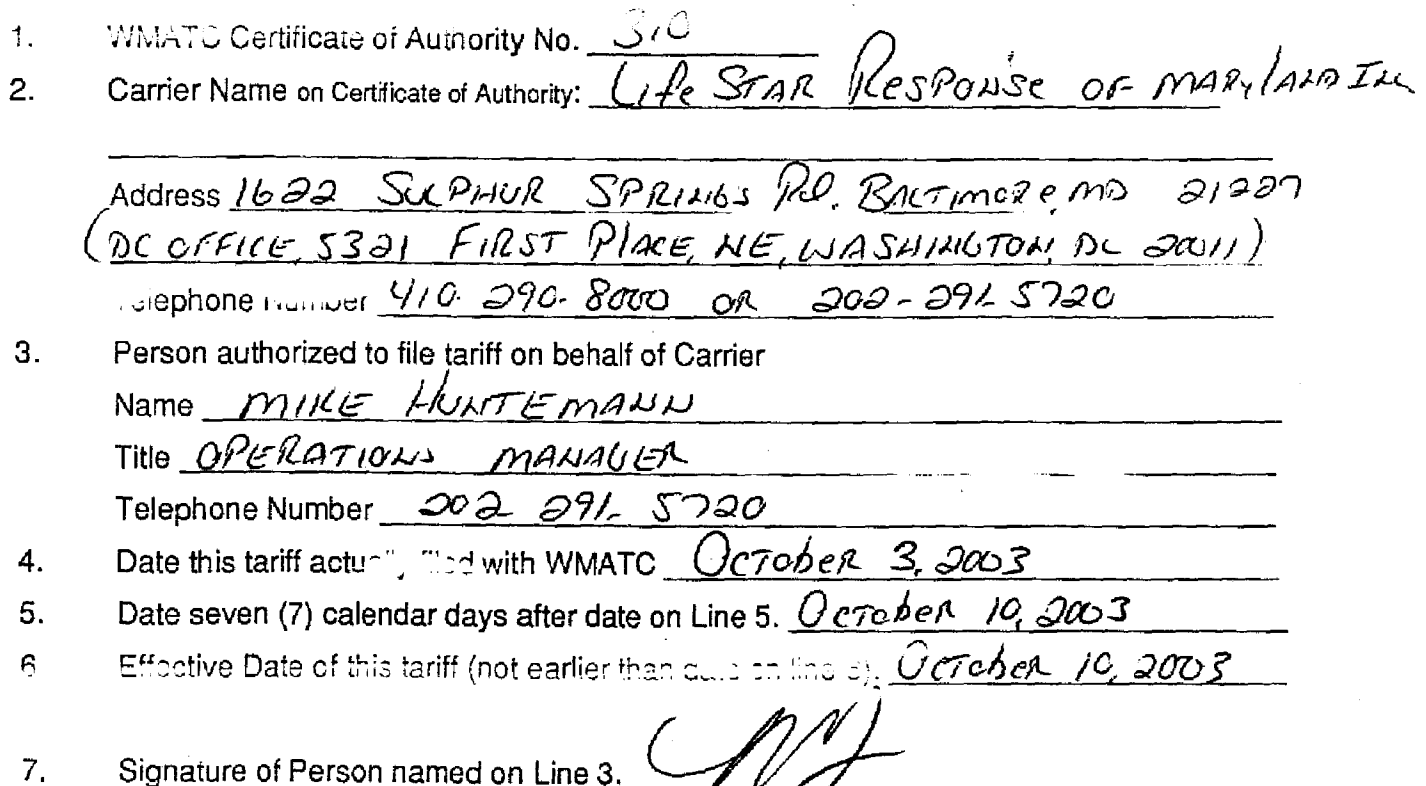 1. WMATC Certificate of Authority No. 310
2. Carrier Name on Certificate of Authority: Life STAR RESPONSE OF MARYLAND INC
Address 1622 SULPHUR SPRINGS Rd. BALTIMORE, MD 21227
(DC OFFICE, 5321 FIRST PLACE, NE, WASHINGTON, DC 20011)
Telephone Number 410-290-8000 OR 202-291-5720
3. Person authorized to file tariff on behalf of Carrier
Name MIKE HUNTEMANN
Title OPERATIONS MANAGER
Telephone Number 202 291-5720
4. Date this tariff actually filed with WMATC OCTOBER 3, 2003
5. Date seven (7) calendar days after date on Line 5. OCTOBER 10, 2003
6 Effective Date of this tariff (not earlier than date on line OCTOBER 10, 2003
7. Signature of Person named on Line 3.